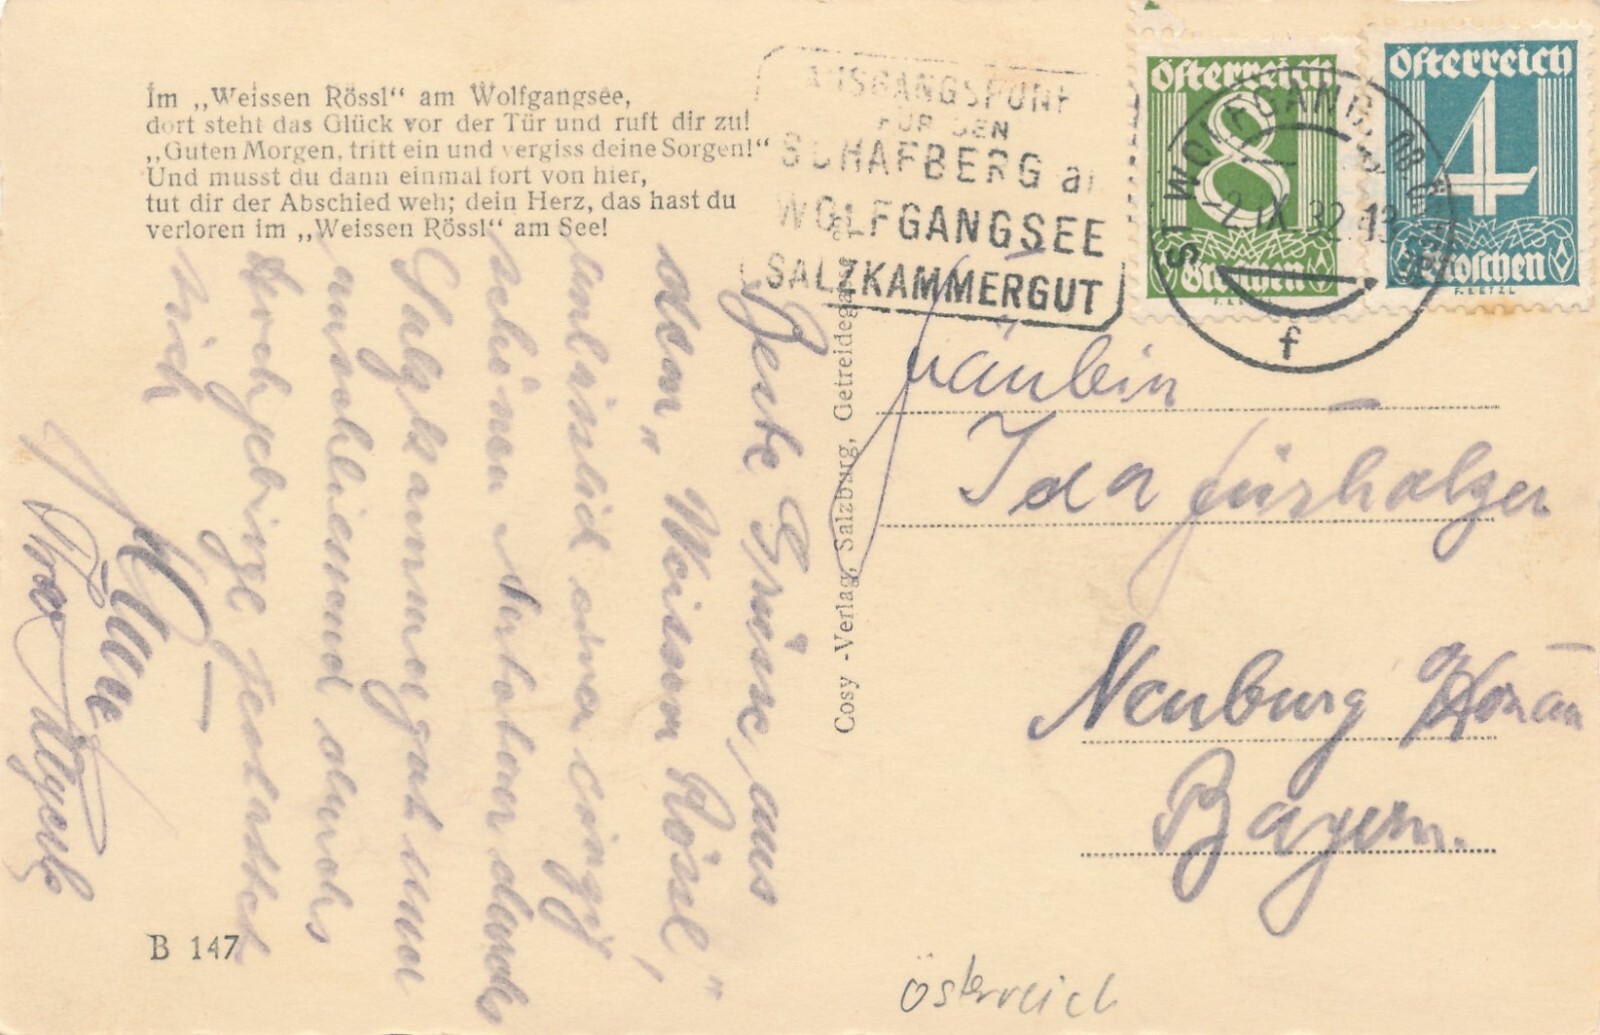 Im „Weissen Rössl“ am Wolfgangsee,
dort steht das Glück vor der Tür und ruft dir zu!
„Guten Morgen, tritt ein und vergiss deine Sorgen!“
Und musst du dann einmal fort von hier,
tut dir der Abschied weh; dein Herz, das hast du
verloren im „Weissen Rössl“ am See!
AUSGANGSPUNKT
FÜR DEN
SCHAFBERG a
WOLFGANGSEE
SALZKAMMERGUT
Österreich
8
Groschen
F. LETZL
Österreich
4
Groschen
F. LETZL
ST. WOLFGANG
-2.IX.32.13
f
Beste Grüsse, aus
dem „Weissen Rössl“,
anlässlich einer
schönen durch
Salzkammergut und
anschliessend durchs
Hochgebirge
mich
Cosy-Verlag, Salzburg, Getreidegasse
Fräulein
Ida Fürholzer
Neuburg Donau
Bayern.
B 147
Österreich